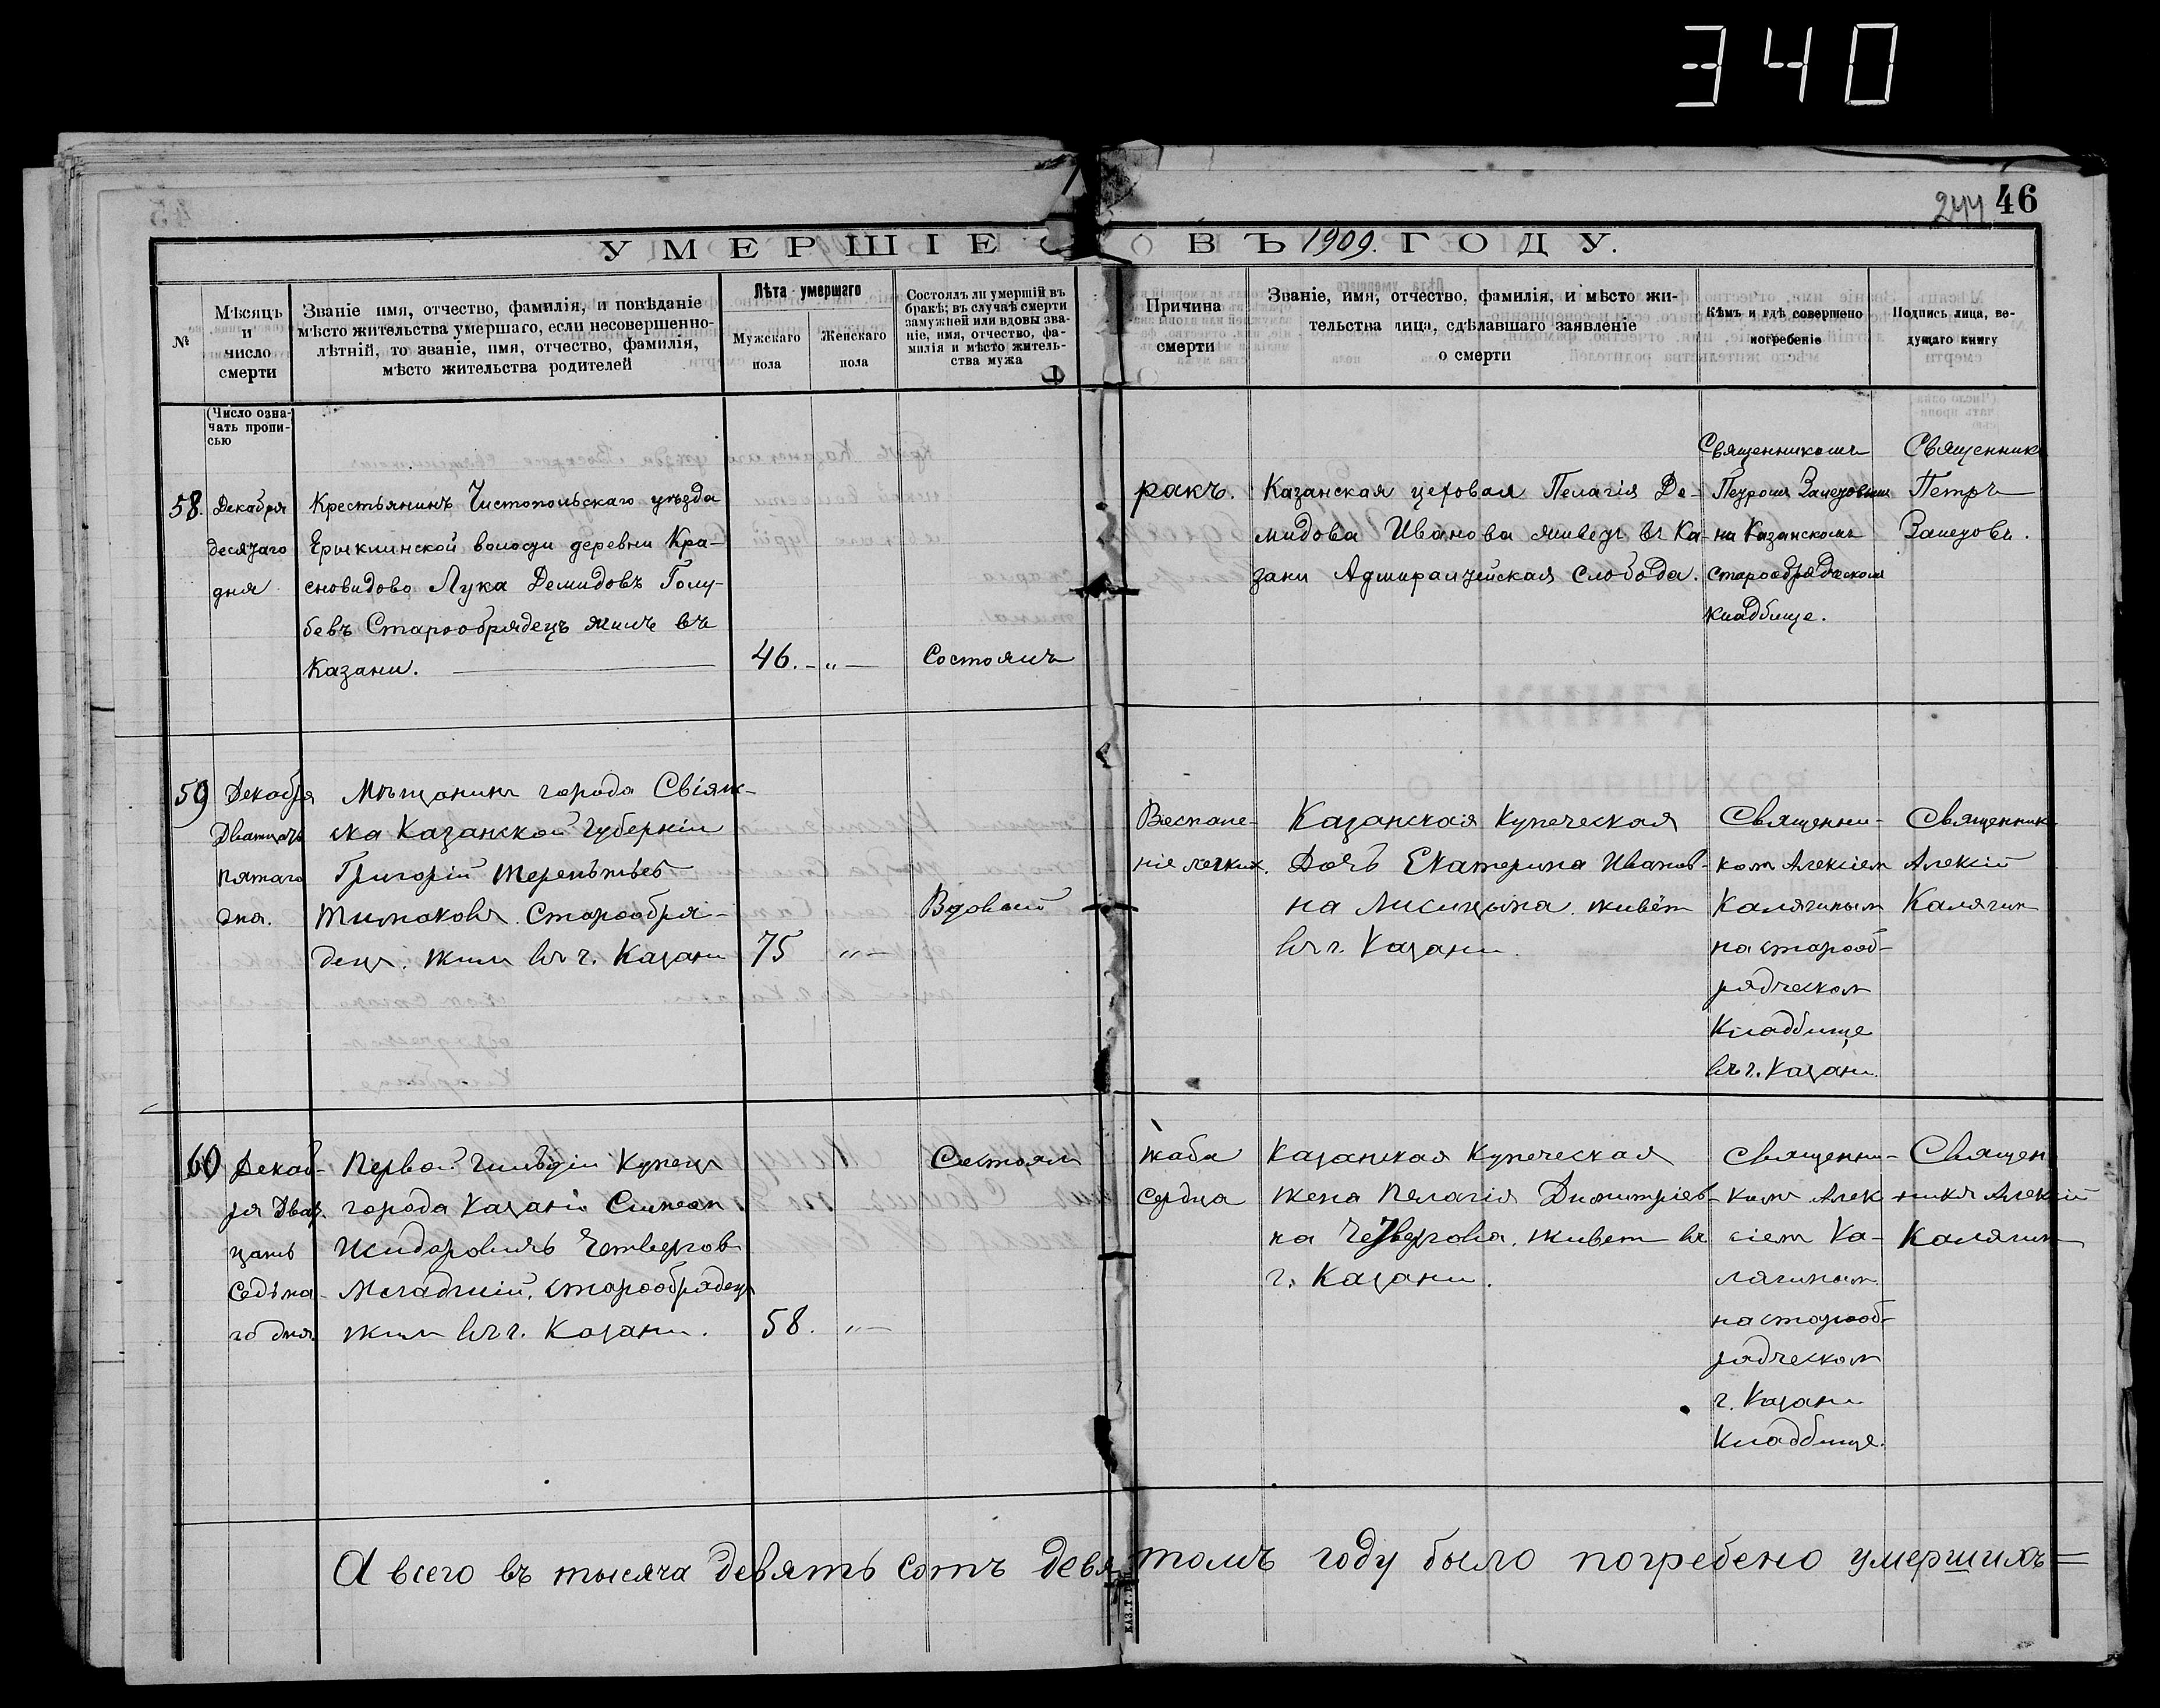 340
244 46
УМЕРШІЕ ВЪ 1909. ГОДУ.
№
Мѣсяцъ
и
число
смерти
Званіе имя, отчество, фамилія, и повѣданіе
мѣсто жительства умершаго, если несовершенно-
лѣтній, то званіе, имя, отчество, фамилія,
мѣсто жительства родителей
Лѣта умершаго
Мужскаго
пола
Женскаго
пола
Состоялъ ли умершій въ
бракѣ; въ случаѣ смерти
замужней или вдовы зва-
ніе, имя, отчество, фа-
милія и мѣсто житель-
ства мужа
Причина
смерти
Званіе, имя, отчество, фамилія, и мѣсто жи-
тельства лица, сдѣлавшаго заявленіе
о смерти
Кѣмъ и гдѣ совершено
погребеніе
Подпись лица, ве-
дущаго книгу
(Число озна-
чать пропи-
сью
58.
Декабря
десятаго
дня
Крестьянинъ Чистопольскаго уѣзда
Ерыклинской волости деревни Кра-
сновидово Лука Демидовъ Голу-
бевъ Старообрядецъ жилъ въ
Казани.
46. - " -
Состоялъ
ракъ.
Казанская цеховая Пелагія Де-
мидова Иванова живетъ въ Ка-
зани Адмиралтейская Слобода.
Священникомъ
Петромъ Залетовымъ
на Казанскомъ
старообрядческом
кладбище.
Священник
Петръ
Залетовъ.
59
Декабря
Дватцать
пятаго
дня.
Мѣщанинъ города Свіяж-
ска Казанской Губерніи
Григорій Терентьев
Тимаковъ. Старообря-
децъ. жил въ г. Казани
75 " -
Вдовый
Воспале-
ніе легких.
Казанская Купеческая
Дочь Екатерина Иванов-
на Лисицына. живёт
въ г. Казани.
Священни-
ком Алексіем
Калягиным
на старооб-
рядческом
Кладбище
въ г. Казани.
Священник
Алексій
Калягин
60
Декаб-
ря Двад-
цать
седьма-
го дня.
Первой Гильдіи Купец
города Казани Симеон
Исидоровичь Четвергов
Младший. старообрядец
жил въ г. Казани.
58. " -
Состоял
жаба
сердца
Казанская Купеческая
жена Пелагія Димитріев-
на Четвергова. живет въ
г. Казани.
Священни-
комъ Алек-
сіем Ка-
лягиным
на старооб-
рядческом
г. Казани
Кладбище.
Священ
никъ Алексій
Калягин
А всего въ тысяча девять сотъ девятомъ году было погребено умершихъ=
КАЗ.Т.